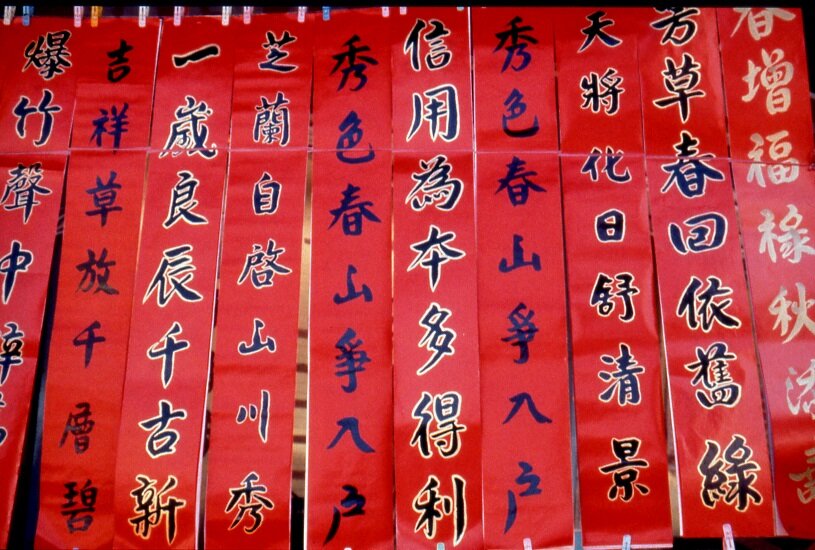 春增福祿秋添
芳草春回依舊綠
天將化日舒清景
秀色春山爭入戶
信用為本多得利
秀色春山爭入戶
芝蘭自啓山川秀
一歲良辰千古新
吉祥草放千層碧
爆竹聲中辭